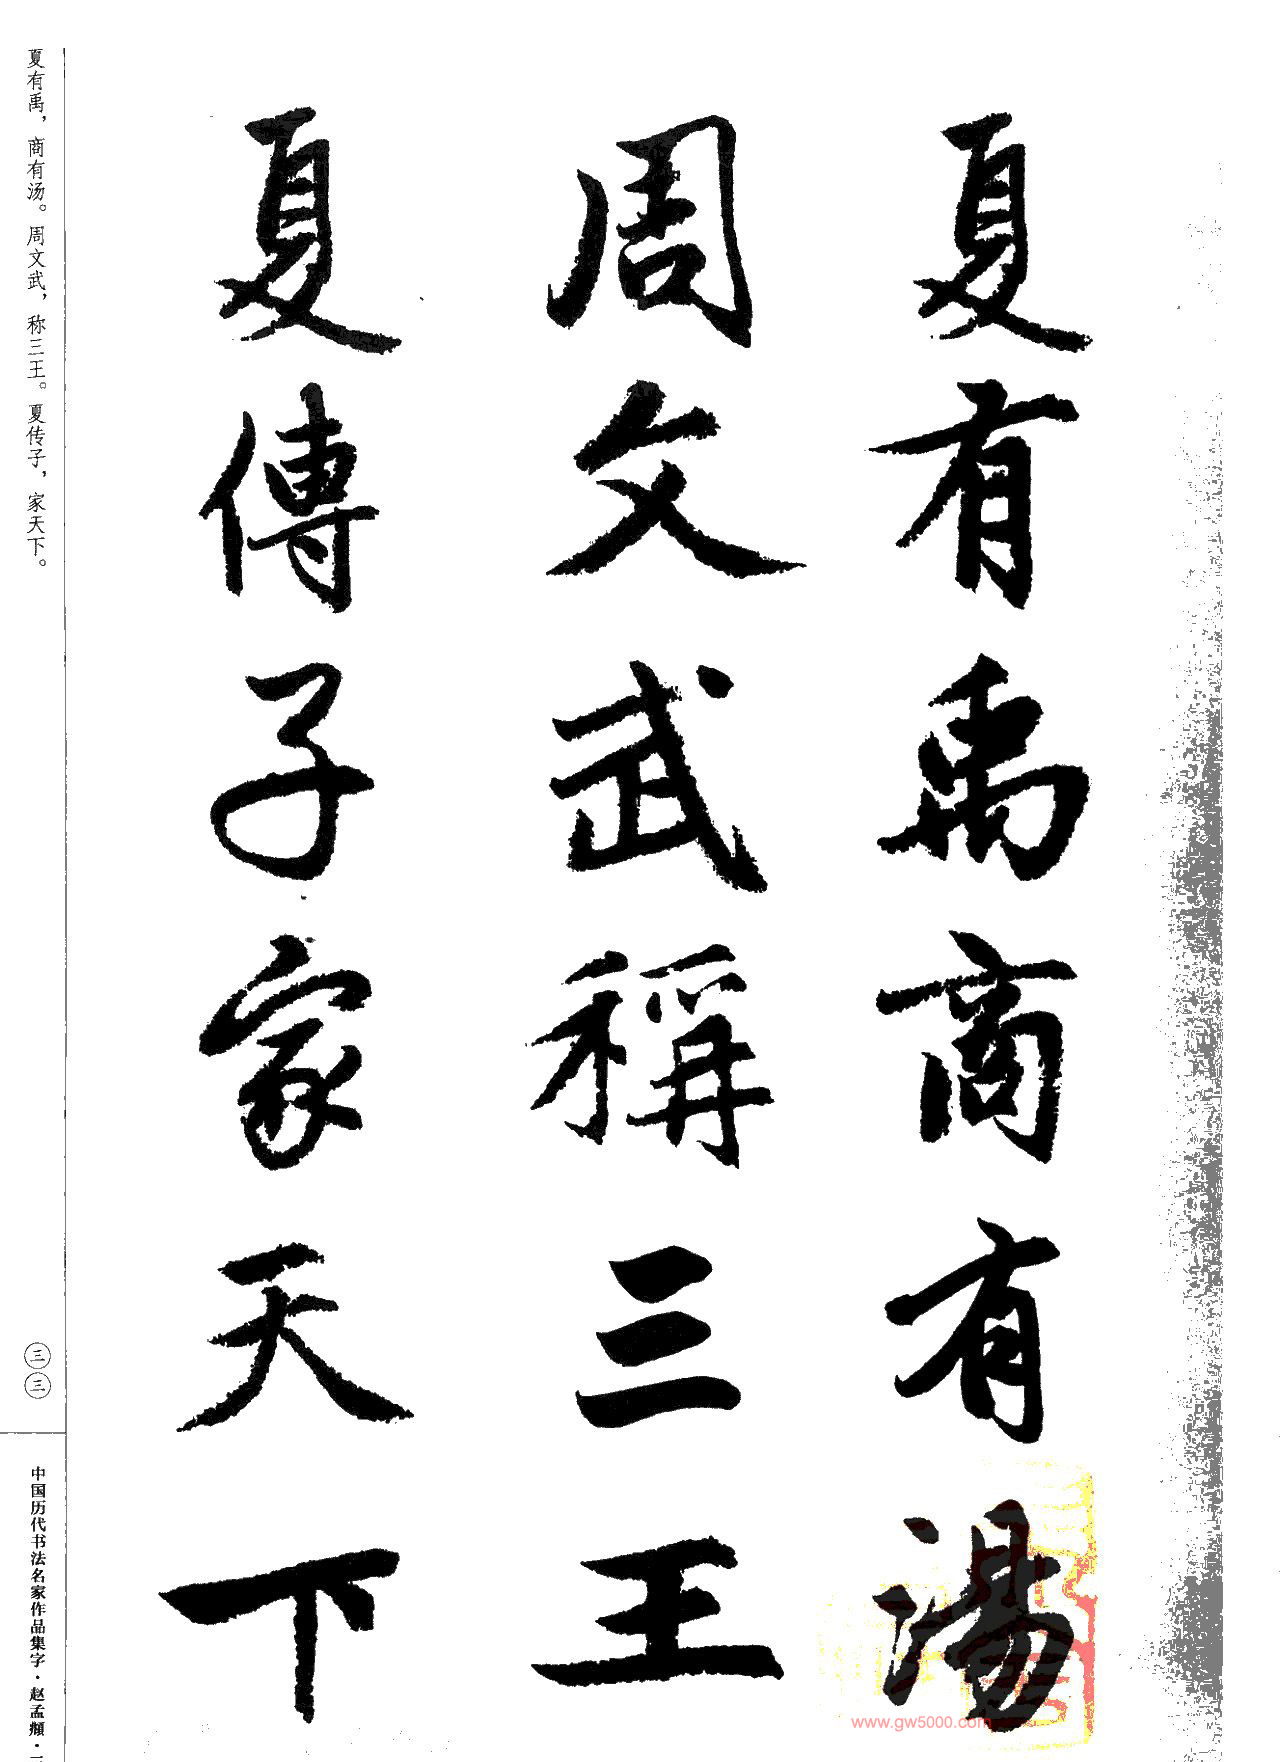 夏有禹商有湯
周文武稱三王
夏傳子家天下
夏有禹，商有汤。周文武，称三王。夏传子，家天下。
三三
中国历代书法名家作品集字·赵孟頫·
www.gw5000.com